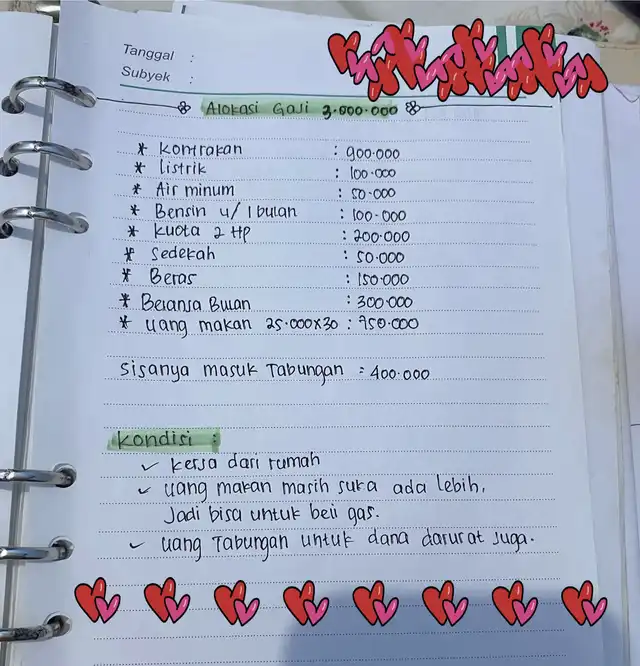 Tanggal :
Subyek :
Alokasi Gaji 3.000.000
* Kontrakan : 900.000
* Listrik : 100.000
* Air minum : 50.000
* Bensin u/ 1 bulan : 100.000
* Kuota 2 Hp : 200.000
* Sedekah : 50.000
* Beras : 150.000
* Belanja Bulan : 300.000
* Uang makan 25.000x30 : 750.000
Sisanya masuk Tabungan : 400.000
Kondisi :
✓ Kerja dari rumah
✓ Uang makan masih suka ada lebih,
Jadi bisa untuk beli gas.
✓ Uang Tabungan untuk dana darurat Juga.